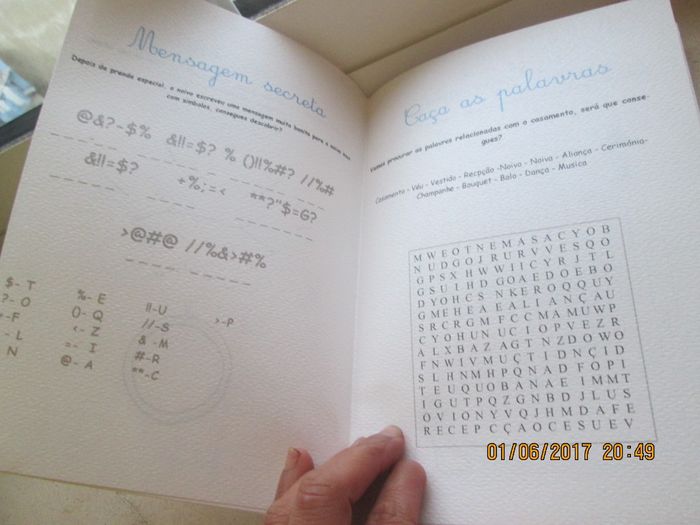 Mensagem secreta
Depois de prenda especial, o noivo escreveu uma mensagem muito bonita para a
com símbolos, consegues descobrir?
@&?-$% &!!=$? % ()!!%#? //%#
&!!=$? +%;=<
>@#@ //%&>#%
$- T
?- O
-F
- L
N
%- E
()- Q
<- Z
=- I
@- A
!!-U
//-S
& -M
#-R
**-C
>-P
Caça as palavras
Vamos procurar as palavras relacionadas com o casamento, será que conse-
gues?
Casamento - Véu - Vestido - Recpção -Noivo - Noiva - Aliança - Cerimónia-
Champanhe - Bouquet - Bolo - Dança - Musica
M W E O T N E M A S A C Y O B
N U D G O J R U R V V E S Q O
G P S X H W W I I C Y R J T L
G S U I H D G O A E D O E B O
D Y O H C S N K E R O Q Q U Y
G M E H E A E A L I A N Ç A U
S R C R G M F C C M A M U W P
C Y O H U N U C I O P V E Z R
A L X B A Z A G T N Z D O W O
F N W I V M U Ç T I D N Ç I D
S L H N M H P Q N A D F O P I
T E U Q U O B A N A E I M M T
I G U T P Q Z G N B D J L U S
O V I O N Y V Q J H M D A F E
R E C E P C Ç A O C E S U E V
01/06/2017 20:49